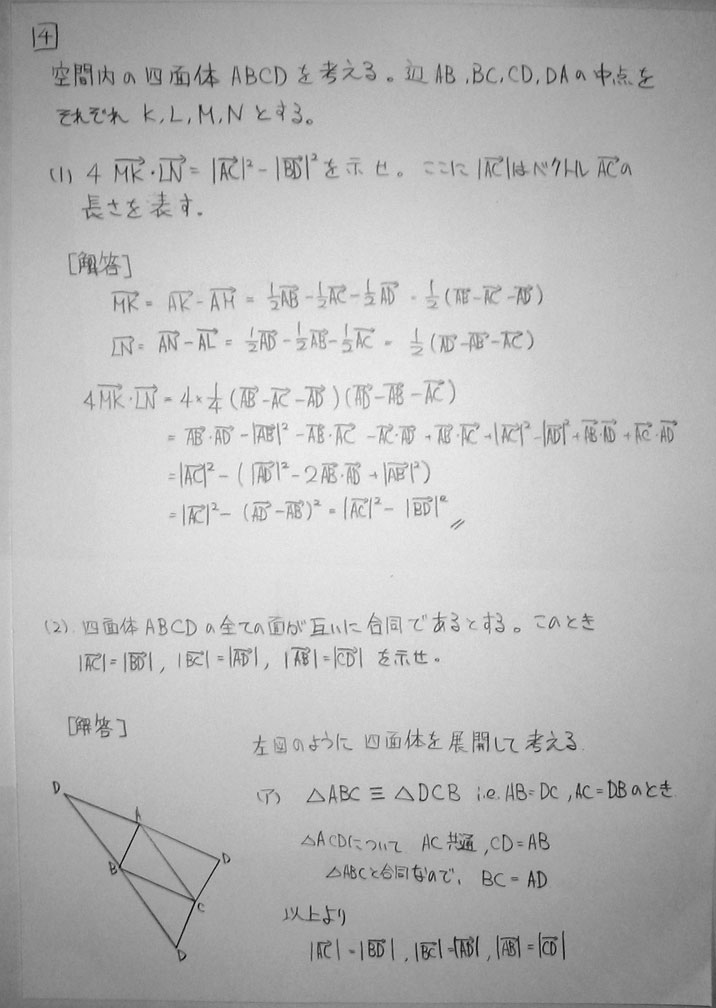 4
空間内の四面体 ABCD を考える。辺 AB, BC, CD, DA の中点を
それぞれ K, L, M, N とする。
(1) 4 \overrightarrow{MK}・\overrightarrow{LN} = |\overrightarrow{AC}|² - |\overrightarrow{BD}|² を示せ。ここに |\overrightarrow{AC}| はベクトル \overrightarrow{AC} の
長さを表す。
[解答]
\overrightarrow{MK} = \overrightarrow{AK} - \overrightarrow{AM} = ½\overrightarrow{AB} - ½\overrightarrow{AC} - ½\overrightarrow{AD} = ½(\overrightarrow{AB} - \overrightarrow{AC} - \overrightarrow{AD})
\overrightarrow{LN} = \overrightarrow{AN} - \overrightarrow{AL} = ½\overrightarrow{AD} - ½\overrightarrow{AB} - ½\overrightarrow{AC} = ½(\overrightarrow{AD} - \overrightarrow{AB} - \overrightarrow{AC})
4\overrightarrow{MK}・\overrightarrow{LN} = 4 × ¼ (\overrightarrow{AB} - \overrightarrow{AC} - \overrightarrow{AD})(\overrightarrow{AD} - \overrightarrow{AB} - \overrightarrow{AC})
= \overrightarrow{AB}・\overrightarrow{AD} - |\overrightarrow{AB}|² - \overrightarrow{AB}・\overrightarrow{AC} - \overrightarrow{AC}・\overrightarrow{AD} + \overrightarrow{AB}・\overrightarrow{AC} + |\overrightarrow{AC}|² - |\overrightarrow{AD}|² + \overrightarrow{AB}・\overrightarrow{AD} + \overrightarrow{AC}・\overrightarrow{AD}
= |\overrightarrow{AC}|² - (|\overrightarrow{AD}|² - 2\overrightarrow{AB}・\overrightarrow{AD} + |\overrightarrow{AB}|²)
= |\overrightarrow{AC}|² - (\overrightarrow{AD} - \overrightarrow{AB})² = |\overrightarrow{AC}|² - |\overrightarrow{BD}|² //
(2). 四面体 ABCD の全ての面が互いに合同であるとする。このとき
|\overrightarrow{AC}| = |\overrightarrow{BD}|, |\overrightarrow{BC}| = |\overrightarrow{AD}|, |\overrightarrow{AB}| = |\overrightarrow{CD}| を示せ。
[解答]
左図のように 四面体を展開して考える.
(ア) △ABC ≡ △DCB i.e. AB=DC, AC=DB のとき
△ACDについて AC共通, CD=AB
△ABCと合同なので、 BC = AD
以上より
|\overrightarrow{AC}| = |\overrightarrow{BD}|, |\overrightarrow{BC}| = |\overrightarrow{AD}|, |\overrightarrow{AB}| = |\overrightarrow{CD}|
D
A
D
B
C
D